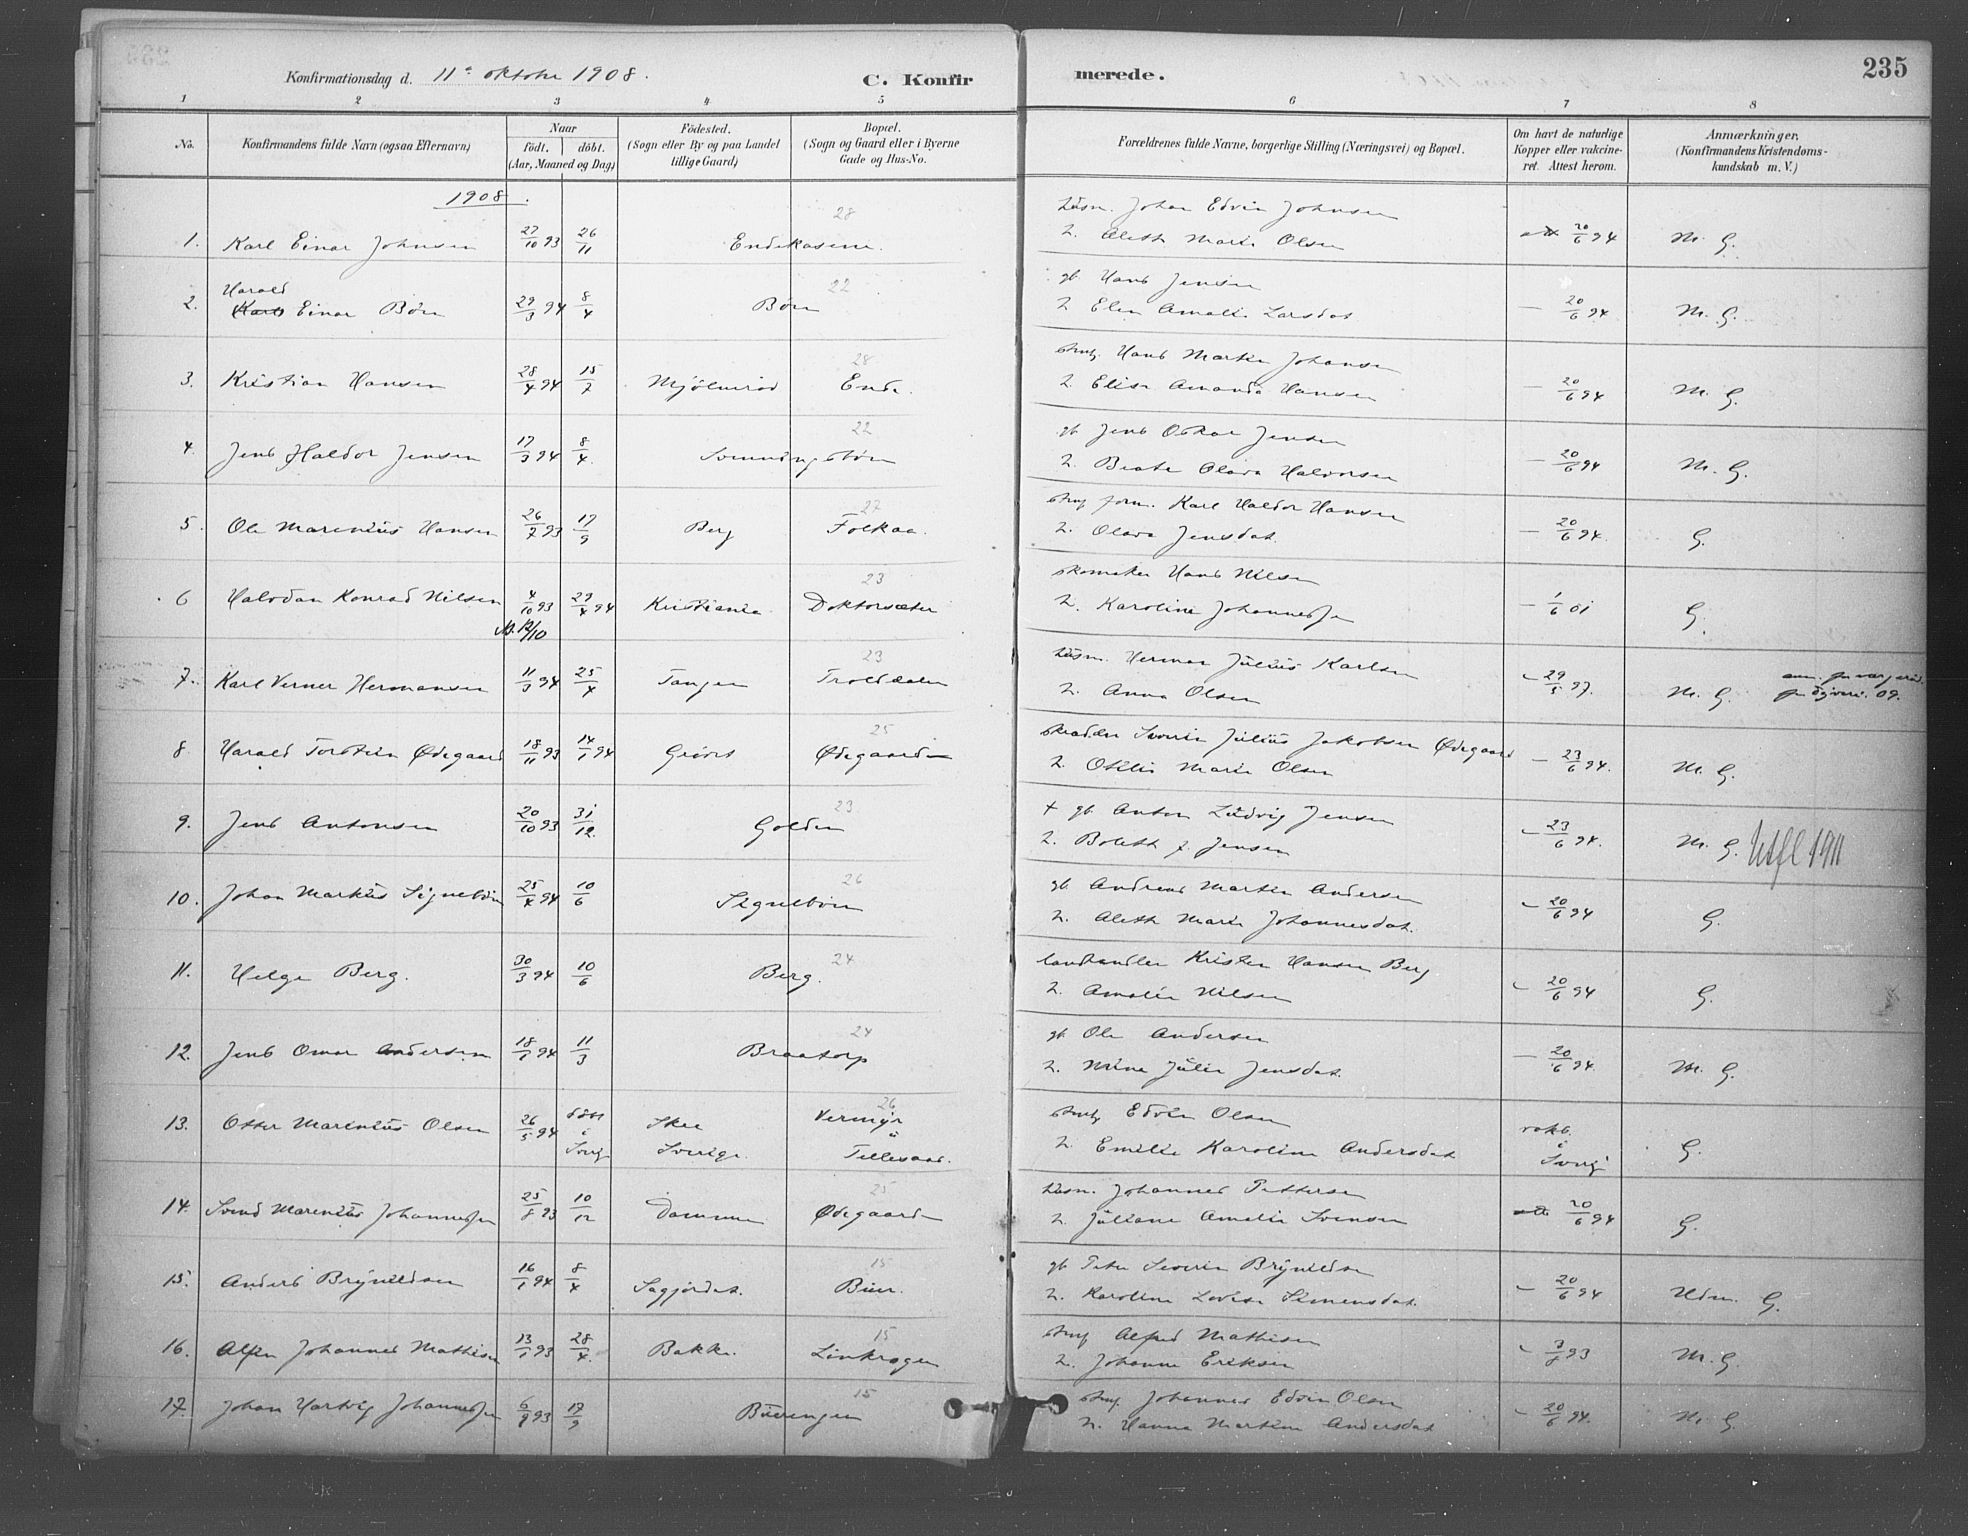 Konfirmationsdag d. 11te oktober 1908. C. Konfirmerede. 235
1 2 3 4 5 6 7 8
No. Konfirmandens fulde Navn (ogsaa Efternavn) Naar født. døbt. (Aar, Maaned og Dag) Fødested. (Sogn eller By og paa Landet tillige Gaard) Bopæl. (Sogn og Gaard eller i Byerne Gade og Hus-No. Forældrenes fulde Navne, borgerlige Stilling (Næringsvei) og Bopæl. Om havt de naturlige Kopper eller vakcineret. Attest herom. Anmærkninger. (Konfirmandens Kristendomskundskab m. V.)
1908.
28 Husm. Johan Edvin Johnsen
1. Karl Einar Johnsen 27/10 93 26/11 Endekasene. H. Aleth Marie Olsen att 20/6 94 M. G.
Harald 22 gb. Hans Jensen
2. (Karl) Einar Bøen 29/3 94 8/4 Bøen H. Elen Amalie Larsdat. — 20/6 94 M. G.
28 Arb. Hans Martin Johansen
3. Kristian Hansen 28/4 94 15/7 Mjølnerød Ende. H. Elise Amanda Hansen — 20/6 94 M. G.
22 gb. Jens Oskar Jensen
4. Jens Haldor Jensen 17/3 94 8/4. H. Beate Olava Halvorsen — 20/6 94 M. G.
27 form. Karl Haldor Hansen
5. Ole Marenius Hansen 26/7 93 17/9 Berg Folkaa. H. Olava Jensdat. — 20/6 94. G.
23 skomaker Hans Nilsen
6 Halvdan Konrad Nilsen 4/10 93 29/4 94 Kristiania Doktorsæter H. Karoline Johannessen — 1/6 01 G.
12/10
23 Husm. Herman Julius Karlsen
7. Karl Verner Hermansen 11/3 94 25/4 Tangen Troldalen H. Anna Olsen 29/5 97. M. G. 09.
25 skrædder Severin Julius Jakobsen Ødegaard
8. Harald Torstein Ødegaard 18/11 93 14/1 94 Ødegaarden H. Otilie Marie Olsen — 23/6 94. M. G.
23 + gb. Anton Ludvig Jensen
9. Jens Antonsen 20/10 93 31/12. Golden H. Boleth J. Jensen 23/6 94. M. G. Utfl 1911
26 gb. Andreas Martin Andersen
10. Johan Markus Signebøen 25/4 94 10/6 Signebøen H. Aleth Marie Johannesdat. 20/6 94 G.
24 landhandler Kristen Hansen Berg
11. Helge Berg. 30/3 94 10/6 Berg. H. Amalie Nilsen 20/6 94 G.
24 gb. Ole Andersen
12. Jens Omar Andersen 18/1 94 11/3 Braatorp H. Mina Julie Jensdat. — 20/6 94. M. G.
26 Arb. Edvin Olsen
13. Otter Marenius Olsen 26/5 94 døbt i Sverig Skee Sverige. Vermyr H. Emilie Karoline Andersdat vakc. i Sverig G.
25 Husm. Johannes Pettersen
14. Svend Marenius Johannessen 25/8 93 10/12 Dammen Ødegaarden H. Juliane Amalia Svensen att 20/6 94 G.
15 gb. Peter Severin Brynildsen
15. Anders Brynildsen 16/1 94 8/4 Sagjordet. Buer. H. Karoline Lovise Simensdat. 20/6 94 Udm. G.
15 Arb. Alfred Mathisen
16. Johannes Mathisen 13/1 93 28/4. Bakke. Linkrogen H. Johanne Eriksen 3/8 93 M. G.
15 Arb. Johannes Edvin Olsen
17. Johan Hartvig Johannessen 6/8 93 17/9 Buerengen H. Hanna Martine Andersdat 20/6 94. M. G.